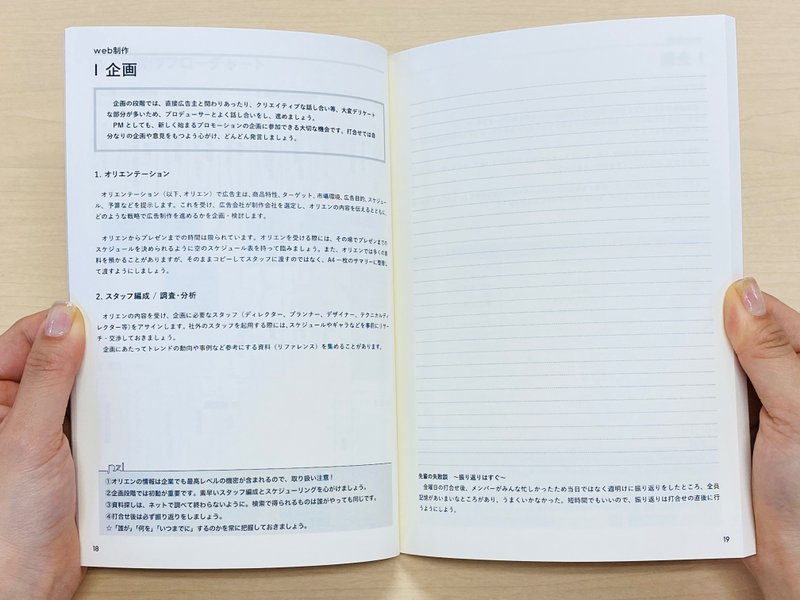 web制作
1 企画
企画の段階では、直接広告主と関わりあったり、クリエイティブな話し合い等、大変デリケート
な部分が多いため、プロデューサーとよく話し合いをし、進めましょう。
PMとしても、新しく始まるプロモーションの企画に参加できる大切な機会です。打合せでは自
分なりの企画や意見をもつよう心がけ、どんどん発言しましょう。
1. オリエンテーション
オリエンテーション（以下、オリエン）で広告主は、商品特性、ターゲット、市場環境、広告目的、スケジュー
ル、予算などを提示します。これを受け、広告会社が制作会社を選定し、オリエンの内容を伝えるとともに、
どのような戦略で広告制作を進めるかを企画・検討します。
オリエンからプレゼンまでの時間は限られています。オリエンを受ける際には、その場でプレゼンまでの
スケジュールを決められるように空のスケジュール表を持って臨みましょう。また、オリエンでは多くの資
料を預かることがありますが、そのままコピーしてスタッフに渡すのではなく、A4一枚のサマリーに整理し
て渡すようにしましょう。
2. スタッフ編成 / 調査・分析
オリエンの内容を受け、企画に必要なスタッフ（ディレクター、プランナー、デザイナー、テクニカルディ
レクター等）をアサインします。社外のスタッフを起用する際には、スケジュールやギャラなどを事前にリサー
チ・交渉しておきましょう。
企画にあたってトレンドの動向や事例など参考にする資料（リファレンス）を集めることがあります。
①オリエンの情報は企業でも最高レベルの機密が含まれるので、取り扱い注意！
②企画段階では初動が重要です。素早いスタッフ編成とスケジューリングを心がけましょう。
③資料探しは、ネットで調べて終わらないように。検索で得られるものは誰がやっても同じです。
④打合せ後は必ず振り返りをしましょう。
☆「誰が」「何を」「いつまでに」するのかを常に把握しておきましょう。
18
先輩の失敗談 〜振り返りはすぐ〜
金曜日の打合せ後、メンバーがみんな忙しかったため当日ではなく週明けに振り返りをしたところ、全員
記憶があいまいなところがあり、うまくいかなかった。短時間でもいいので、振り返りは打合せの直後に行
うようにしよう。
19